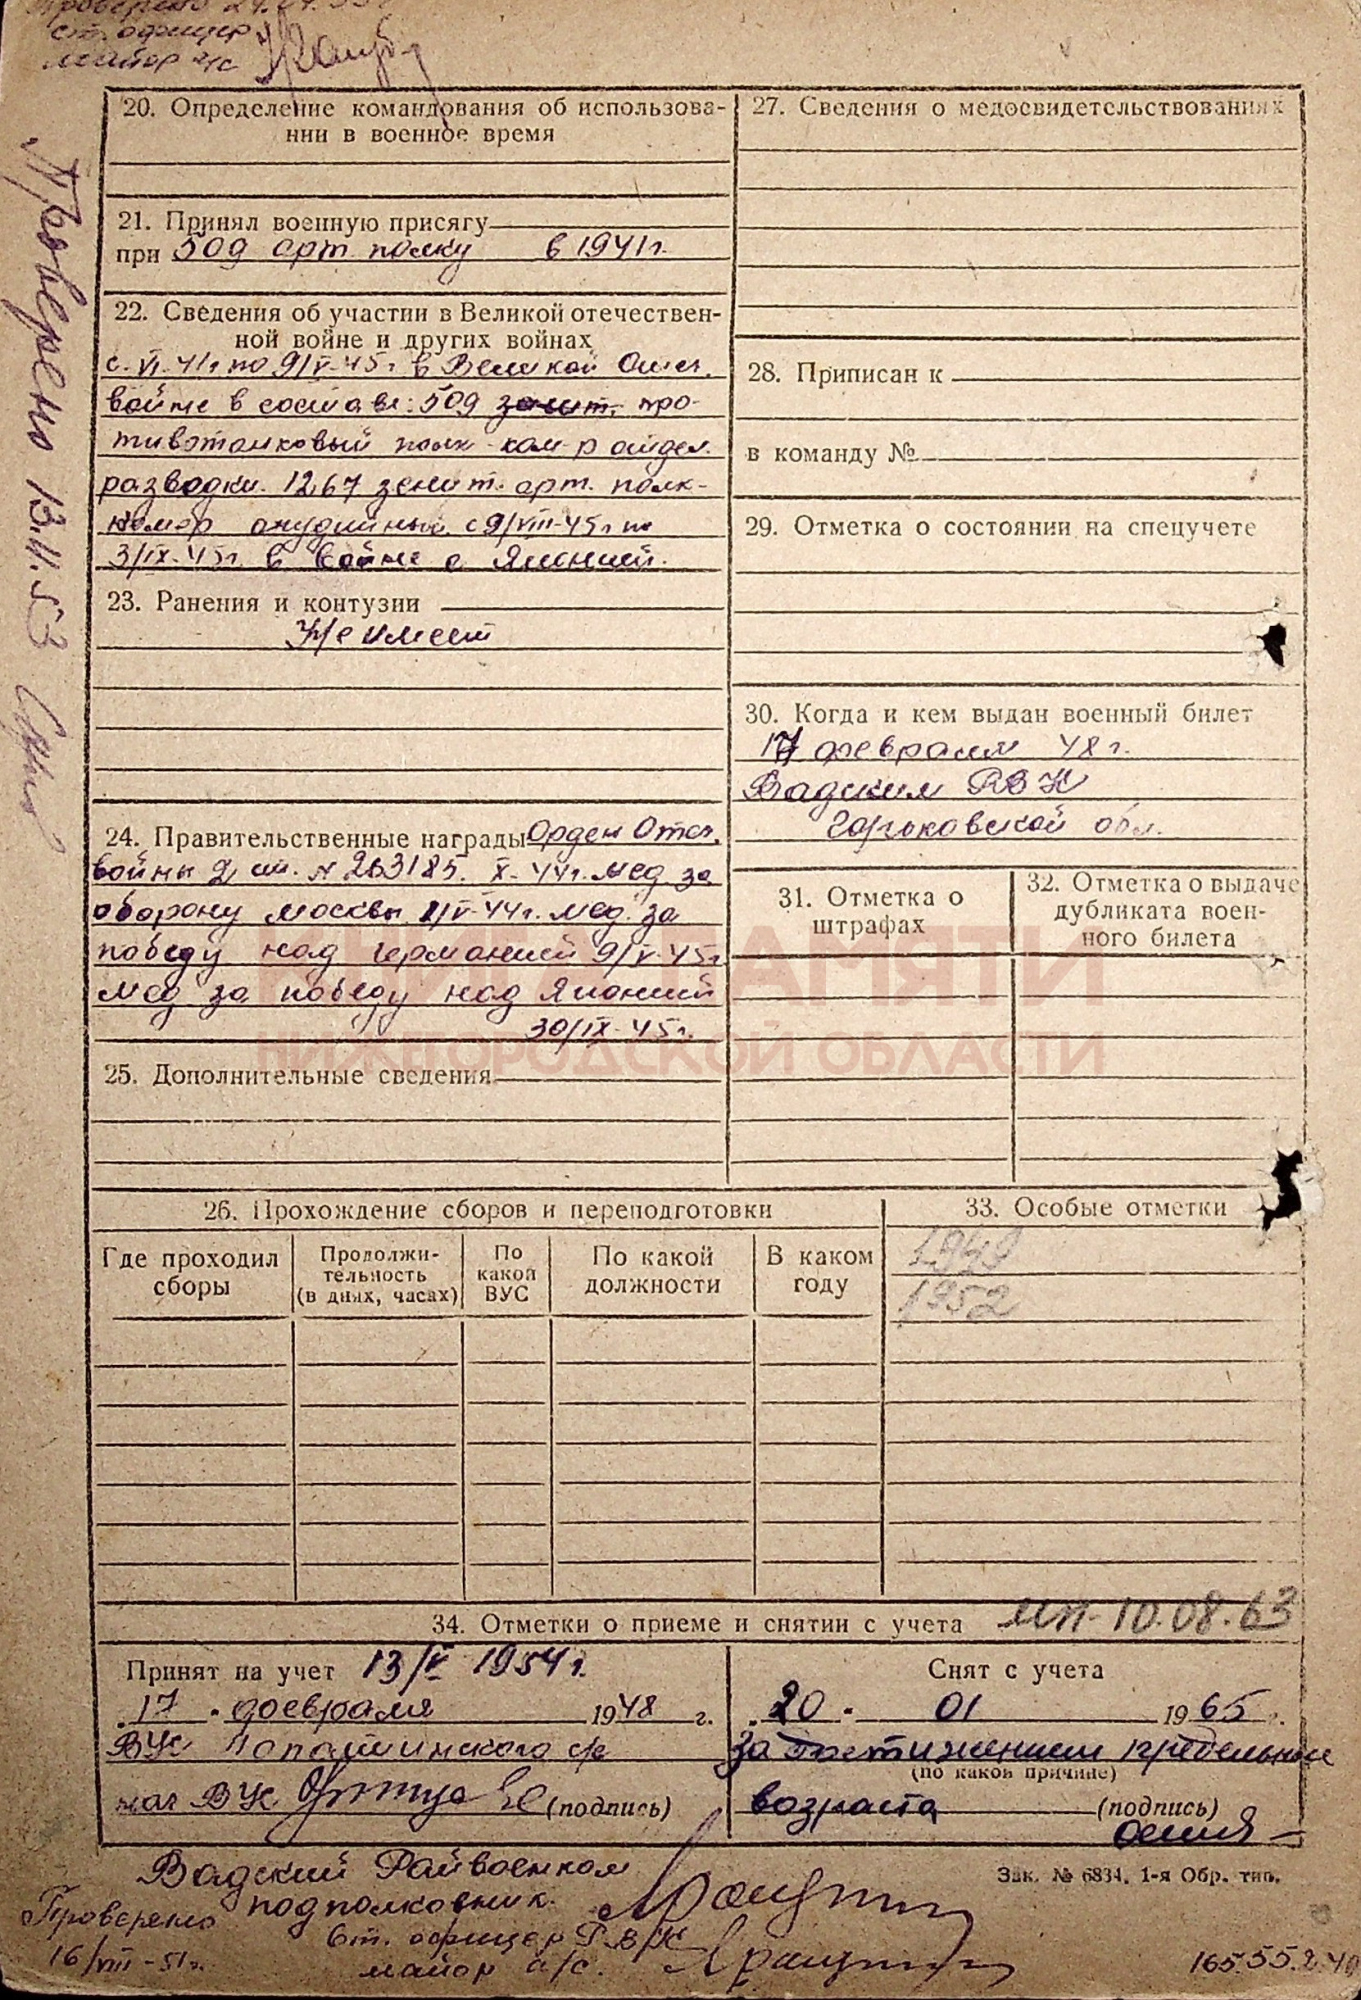 Проверено
ст. офицер
майор а/с
Проверено 13.11.53
20. Определение командования об использова-
нии в военное время
21. Принял военную присягу
при 509 арт. полку в 1941 г.
22. Сведения об участии в Великой отечествен-
ной войне и других войнах
с. VI. 41 г по 9/V-45 г в Великой Отеч.
войне в составе: 509 зенит. про-
тивотанковый полк - ком-р отдел.
разведки. 1267 зенит. арт. полк-
номер орудийный с 9/VIII-45 г по
3/IX-45 г. в войне с Японией.
23. Ранения и контузии
Не имеет
24. Правительственные награды Орден Отеч.
войны 2 ст. № 263185. X-44 г. мед. за
оборону Москвы 1/V-44 г. мед. за
победу над германией 9/V-45 г
мед за победу над Японией
30/IX-45 г.
25. Дополнительные сведения
27. Сведения о медосвидетельствованиях
28. Приписан к
в команду №
29. Отметка о состоянии на спецучете
30. Когда и кем выдан военный билет
17 февраля 48 г.
Вадским РВК
Горьковской обл.
31. Отметка о
штрафах
32. Отметка о выдаче
дубликата воен-
ного билета
КНИГА ПАМЯТИ
НИЖЕГОРОДСКОЙ ОБЛАСТИ
26. Прохождение сборов и переподготовки
Где проходил
сборы
Продолжи-
тельность
(в днях, часах)
По
какой
ВУС
По какой
должности
В каком
году
33. Особые отметки
1949
1952
34. Отметки о приеме и снятии с учета мп-10.08.63
Принят на учет 13/V 1954 г.
17 февраля 1948 г.
ВУС Лопатинского с/с
нач ВУС (подпись)
Снят с учета
20. 01 1965 г.
за достижением предельного
(по какой причине)
возраста (подпись)
Вадский Райвоенком
подполковник
Зак. № 6834. 1-я Обр. тип.
Проверено
16/VIII-51 г.
Ст. офицер РВК
майор а/с.
165.55.2.40